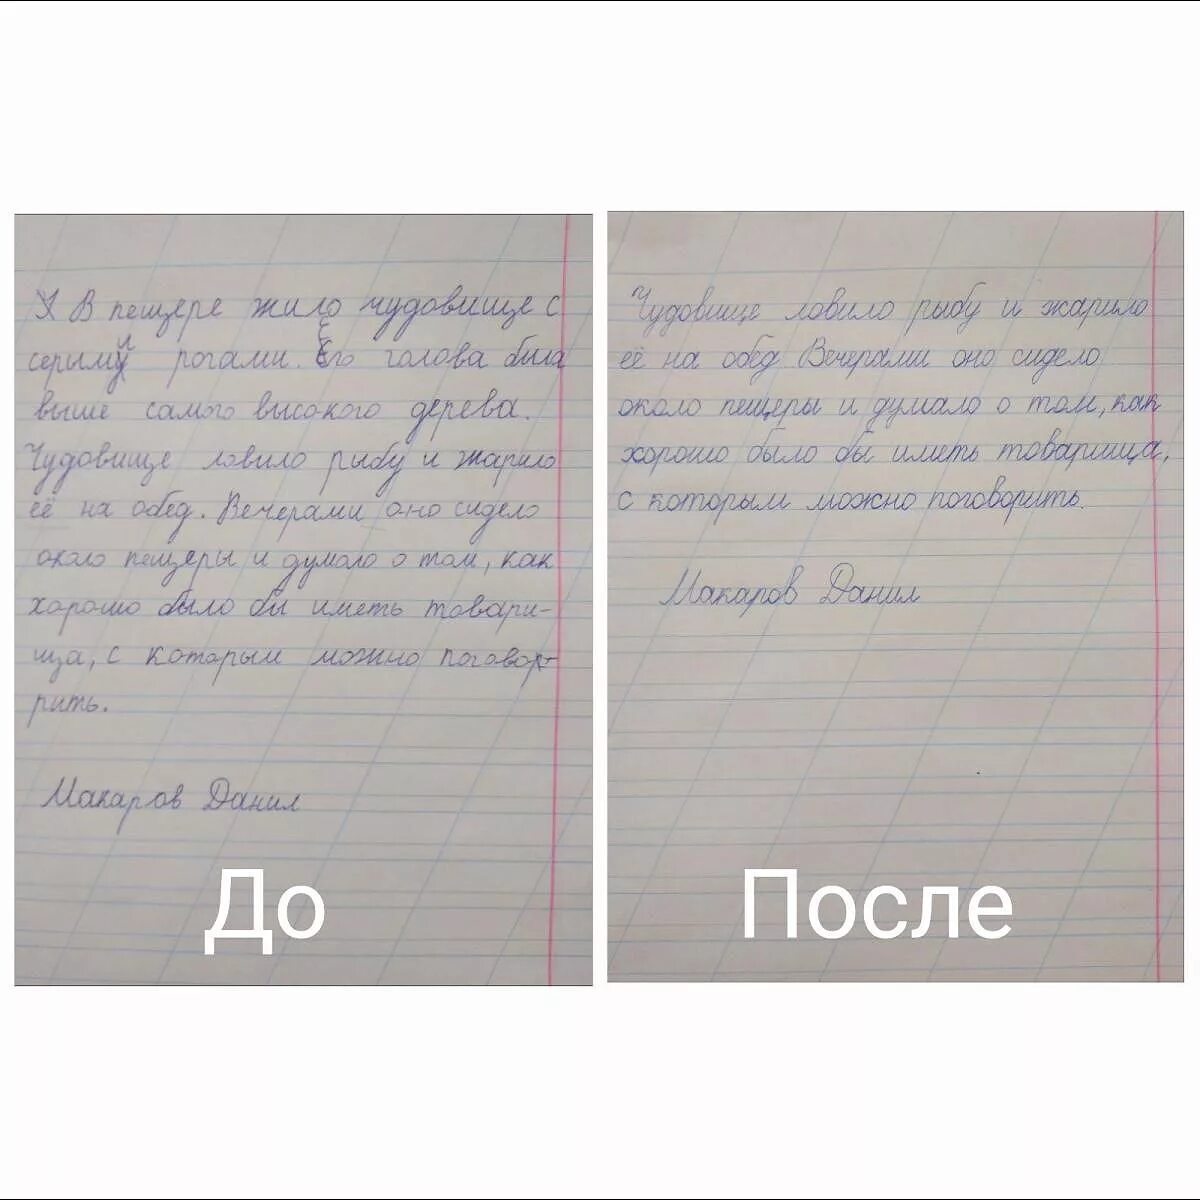 В пещере жило чудовище с
серыми рогами. Его голова была
выше самого высокого дерева.
Чудовище ловило рыбу и жарило
её на обед. Вечерами оно сидело
около пещеры и думало о том, как
хорошо было бы иметь товари-
ща, с которым можно поговор-
рить.
Макаров Данил
До
Чудовище ловило рыбу и жарило
её на обед. Вечерами оно сидело
около пещеры и думало о том, как
хорошо было бы иметь товарища,
с которым можно поговорить.
Макаров Данил
После